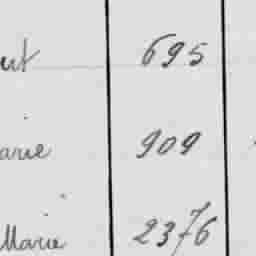 695
arie 909
Marie 2376